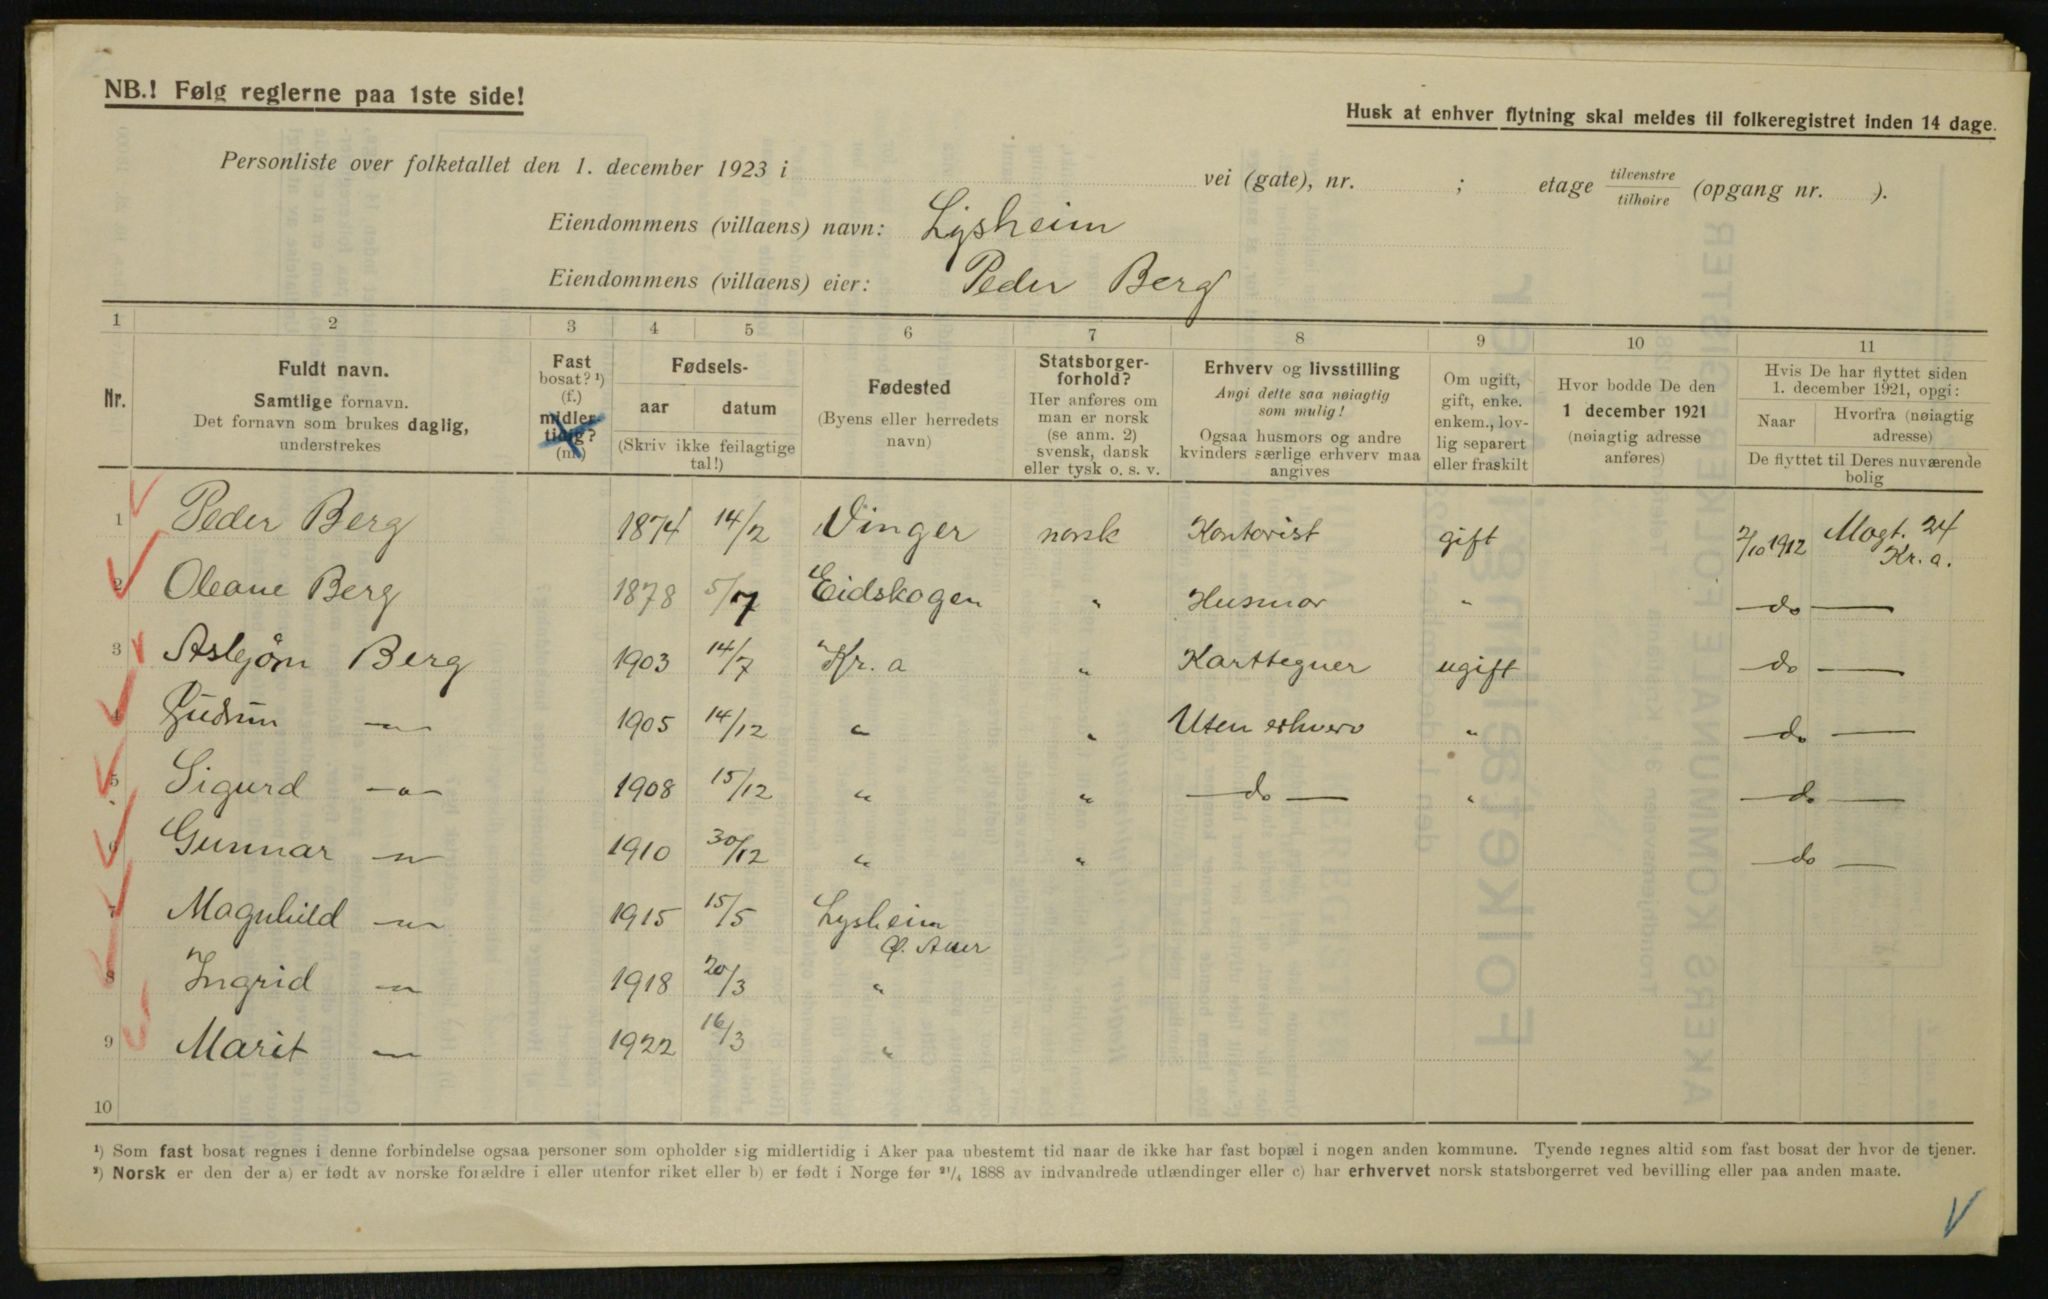 NB.! Følg reglerne paa 1ste side!
Husk at enhver flytning skal meldes til folkeregistret inden 14 dage.
Personliste over folketallet den 1. december 1923 i vei (gate), nr. ; etage tilvenstre / tilhøire (opgang nr. ).
Eiendommens (villaens) navn: Lysheim
Eiendommens (villaens) eier: Peder Berg
1 2 3 4 5 6 7 8 9 10 11
Nr.
Fuldt navn.
Samtlige fornavn.
Det fornavn som brukes daglig,
understrekes
Fast
bosat? ¹)
(f.)
midler-
tidig?
(m.)
Fødsels-
aar datum
(Skriv ikke feilagtige
tal!)
Fødested
(Byens eller herredets
navn)
Statsborger-
forhold?
Her anføres om
man er norsk
(se anm. 2)
svensk, dansk
eller tysk o. s. v.
Erhverv og livsstilling
Angi dette saa nøiagtig
som mulig!
Ogsaa husmors og andre
kvinders særlige erhverv maa
angives
Om ugift,
gift, enke.
enkem., lov-
lig separert
eller fraskilt
Hvor bodde De den
1 december 1921
(nøiagtig adresse
anføres)
Hvis De har flyttet siden
1. december 1921, opgi:
Naar
Hvorfra (nøiagtig
adresse)
De flyttet til Deres nuværende
bolig
1 Peder Berg 1874 14/2 Vinger norsk Kontorist gift 2/10 1912 Magt. 24
Kr. a.
2 Oleane Berg 1878 5/7 Eidskogen " Husmor " — do —
3 Asbjørn Berg 1903 14/7 Kr. a " Karttegner ugift — do —
4 Gudrun —"— 1905 14/12 " " Uten erhverv " — do —
5 Sigurd —"— 1908 15/12 " " — do — " — do —
6 Gunnar —"— 1910 30/12 " " — do —
7 Magnhild —"— 1915 15/5 Lysheim
Ø. Aker
8 Ingrid —"— 1918 20/3 "
9 Marit —"— 1922 16/3 "
10
¹) Som fast bosat regnes i denne forbindelse ogsaa personer som opholder sig midlertidig i Aker paa ubestemt tid naar de ikke har fast bopæl i nogen anden kommune. Tyende regnes altid som fast bosat der hvor de tjener.
²) Norsk er den der a) er født av norske forældre i eller utenfor riket eller b) er født i Norge før ²¹/₄ 1888 av indvandrede utlændinger eller c) har erhvervet norsk statsborgerret ved bevilling eller paa anden maate.